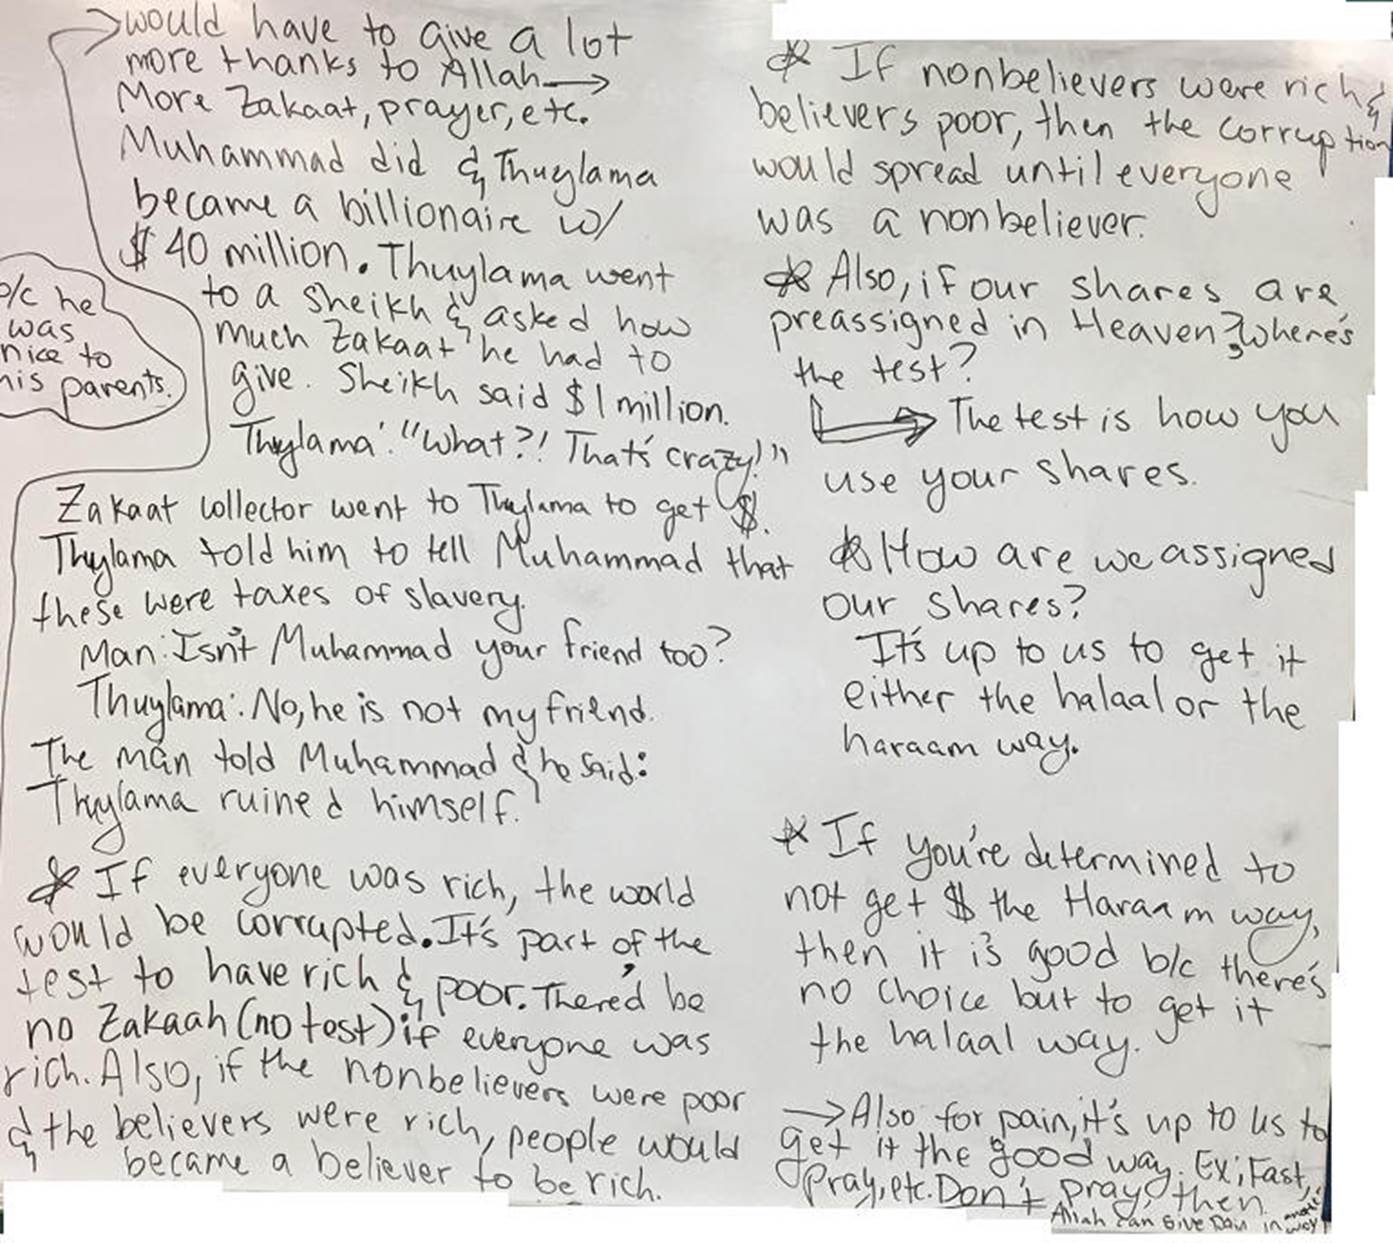 would have to give a lot
more thanks to Allah →
More Zakaat, prayer, etc.
Muhammad did & Thuylama
became a billionaire w/
$ 40 million. Thuylama went
to a sheikh & asked how
much Zakaat he had to
give. Sheikh said $1 million.
Thylama: "What?! That's crazy!"
b/c he
was
nice to
his parents.
Zakaat collector went to Thylama to get $.
Thylama told him to tell Muhammad that
these were taxes of slavery.
Man: Isn't Muhammad your friend too?
Thuylama: No, he is not my friend.
The man told Muhammad & he said:
Thylama ruined himself.
* If everyone was rich, the world
would be corrupted. It's part of the
test to have rich & poor. There'd be
no Zakaah (no test) if everyone was
rich. Also, if the nonbelievers were poor
& the believers were rich, people would
became a believer to be rich.
* If nonbelievers were rich &
believers poor, then the corruption
would spread until everyone
was a nonbeliever.
* Also, if our shares are
preassigned in Heaven, where's
the test?
→ The test is how you
use your shares.
* How are we assigned
our shares?
It's up to us to get it
either the halaal or the
haraam way.
* If you're determined to
not get $ the Haraam way,
then it is good b/c there's
no choice but to get it
the halaal way.
→ Also for pain, it's up to us to
get it the good way. Ex; Fast,
Pray, etc. Don't pray, then
Allah can give pain in another way